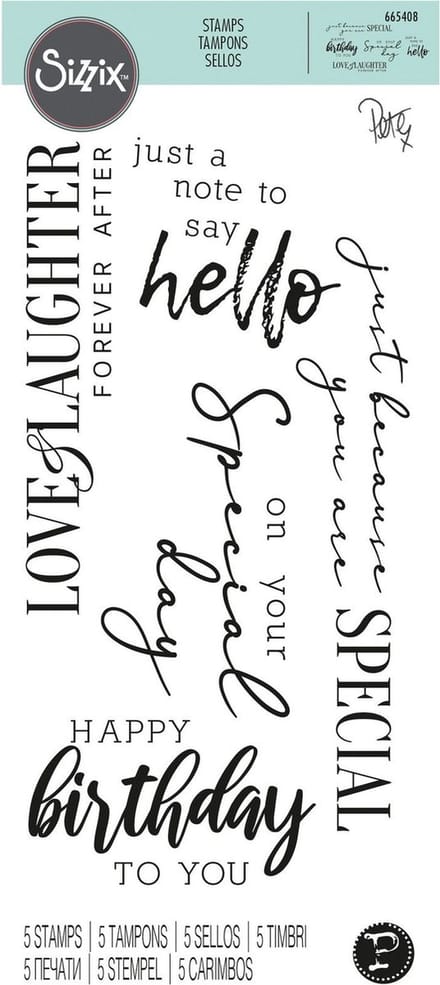 Sizzix™
STAMPS
TAMPONS
SELLOS
665408
just because
you are SPECIAL
HAPPY
birthday
TO YOU
on your
Special
day
just a
note to
say
hello
LOVE & LAUGHTER
FOREVER AFTER
Pete x
LOVE & LAUGHTER
FOREVER AFTER
just a
note to
say
hello
just because
you are
SPECIAL
on your
Special
day
HAPPY
birthday
TO YOU
5 STAMPS | 5 TAMPONS | 5 SELLOS | 5 TIMBRI
5 ПЕЧАТИ | 5 STEMPEL | 5 CARIMBOS
P